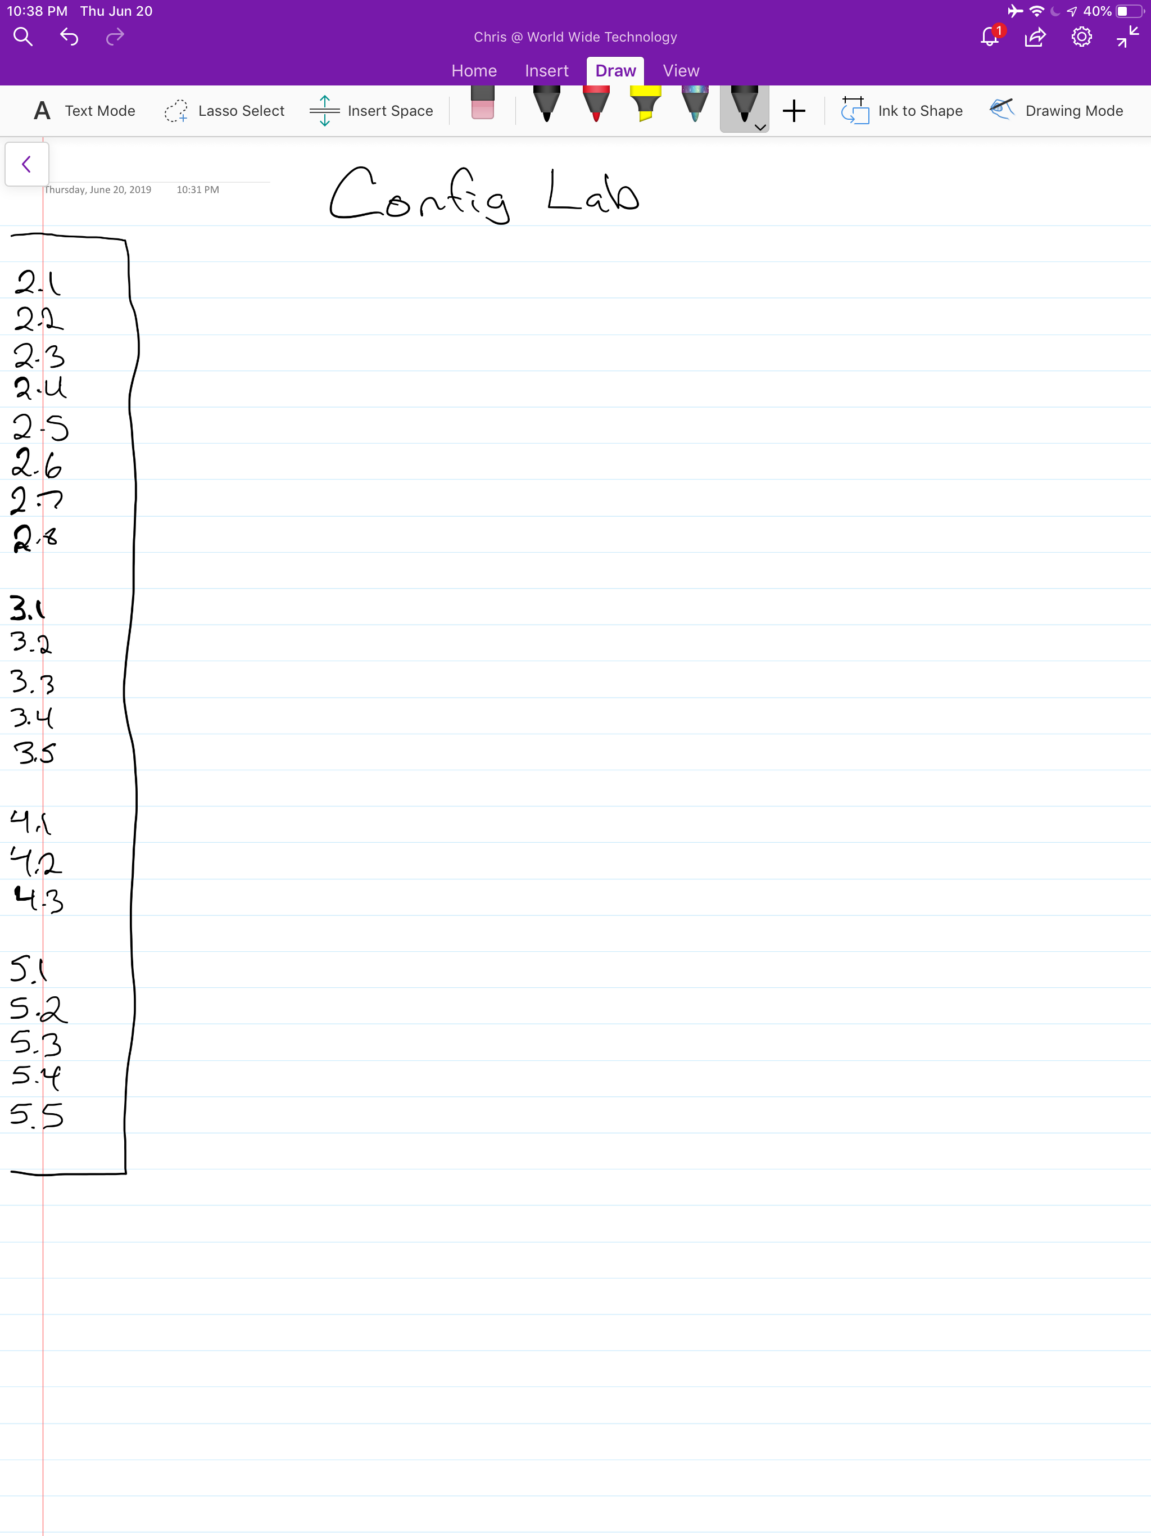 10:38 PM Thu Jun 20
40%
1
Chris @ World Wide Technology
Home Insert Draw View
A Text Mode Lasso Select Insert Space Ink to Shape Drawing Mode
Thursday, June 20, 2019 10:31 PM
Config Lab
2.1
2.2
2.3
2.4
2.5
2.6
2.7
2.8
3.1
3.2
3.3
3.4
3.5
4.1
4.2
4.3
5.1
5.2
5.3
5.4
5.5